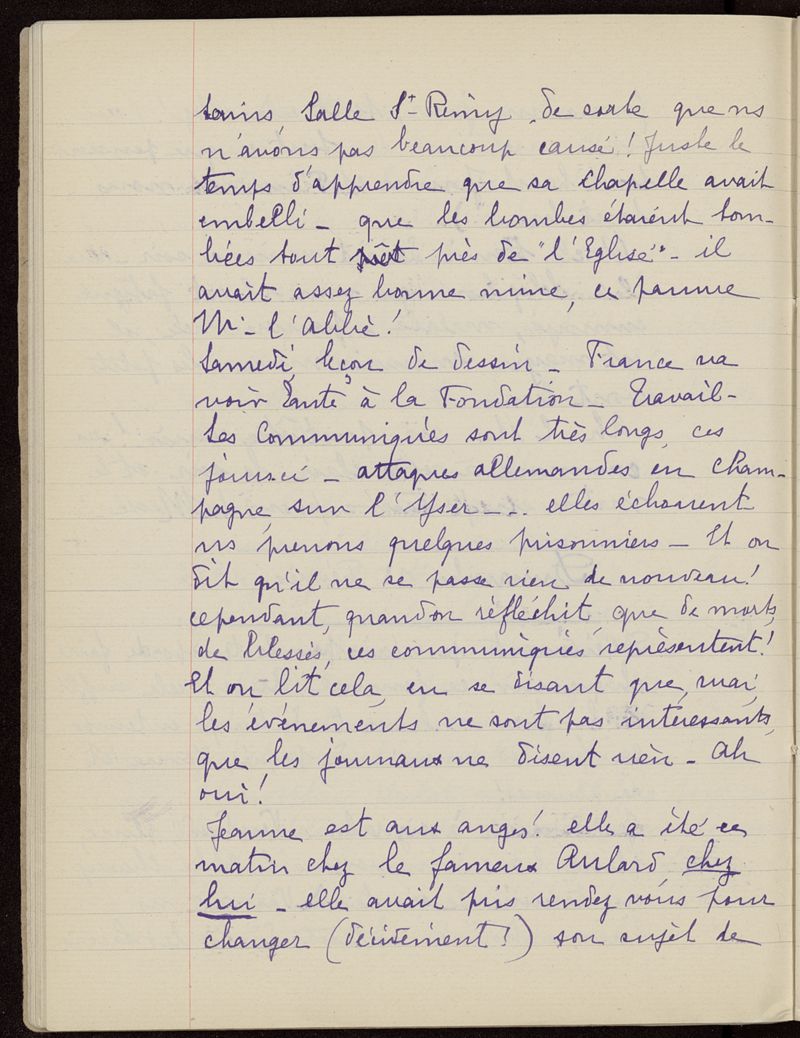 tains Salle St-Rémy, de sorte que ns
n'avons pas beaucoup causé! Juste le
temps d'apprendre que sa chapelle avait
embelli - que les bombes étaient tom-
bées tout près de "l'Eglise" - il
avait assez bonne mine, ce pauvre
Mr. l'abbé!
Samedi, leçon de dessin - France va
voir "Tante" à la Fondation - Travail -
Les Communiqués sont très longs, ces
jours-ci - attaques allemandes en Cham-
pagne, sur l'Yser - .. elles échouent
ns prenons quelques prisonniers - Et on
dit qu'il ne se passe rien de nouveau!
cependant, quand on réfléchit, que de morts,
de blessés, ces communiqués représentent!
Et on lit cela, en se disant que, vrai,
les événements ne sont pas intéressants,
que les journaux ne disent rien - ah
oui!
Jeanne est aux anges! elle a été ce
matin chez le fameux Aulard, chez
lui - elle avait pris rendez vous pour
changer (décidément!) son sujet de